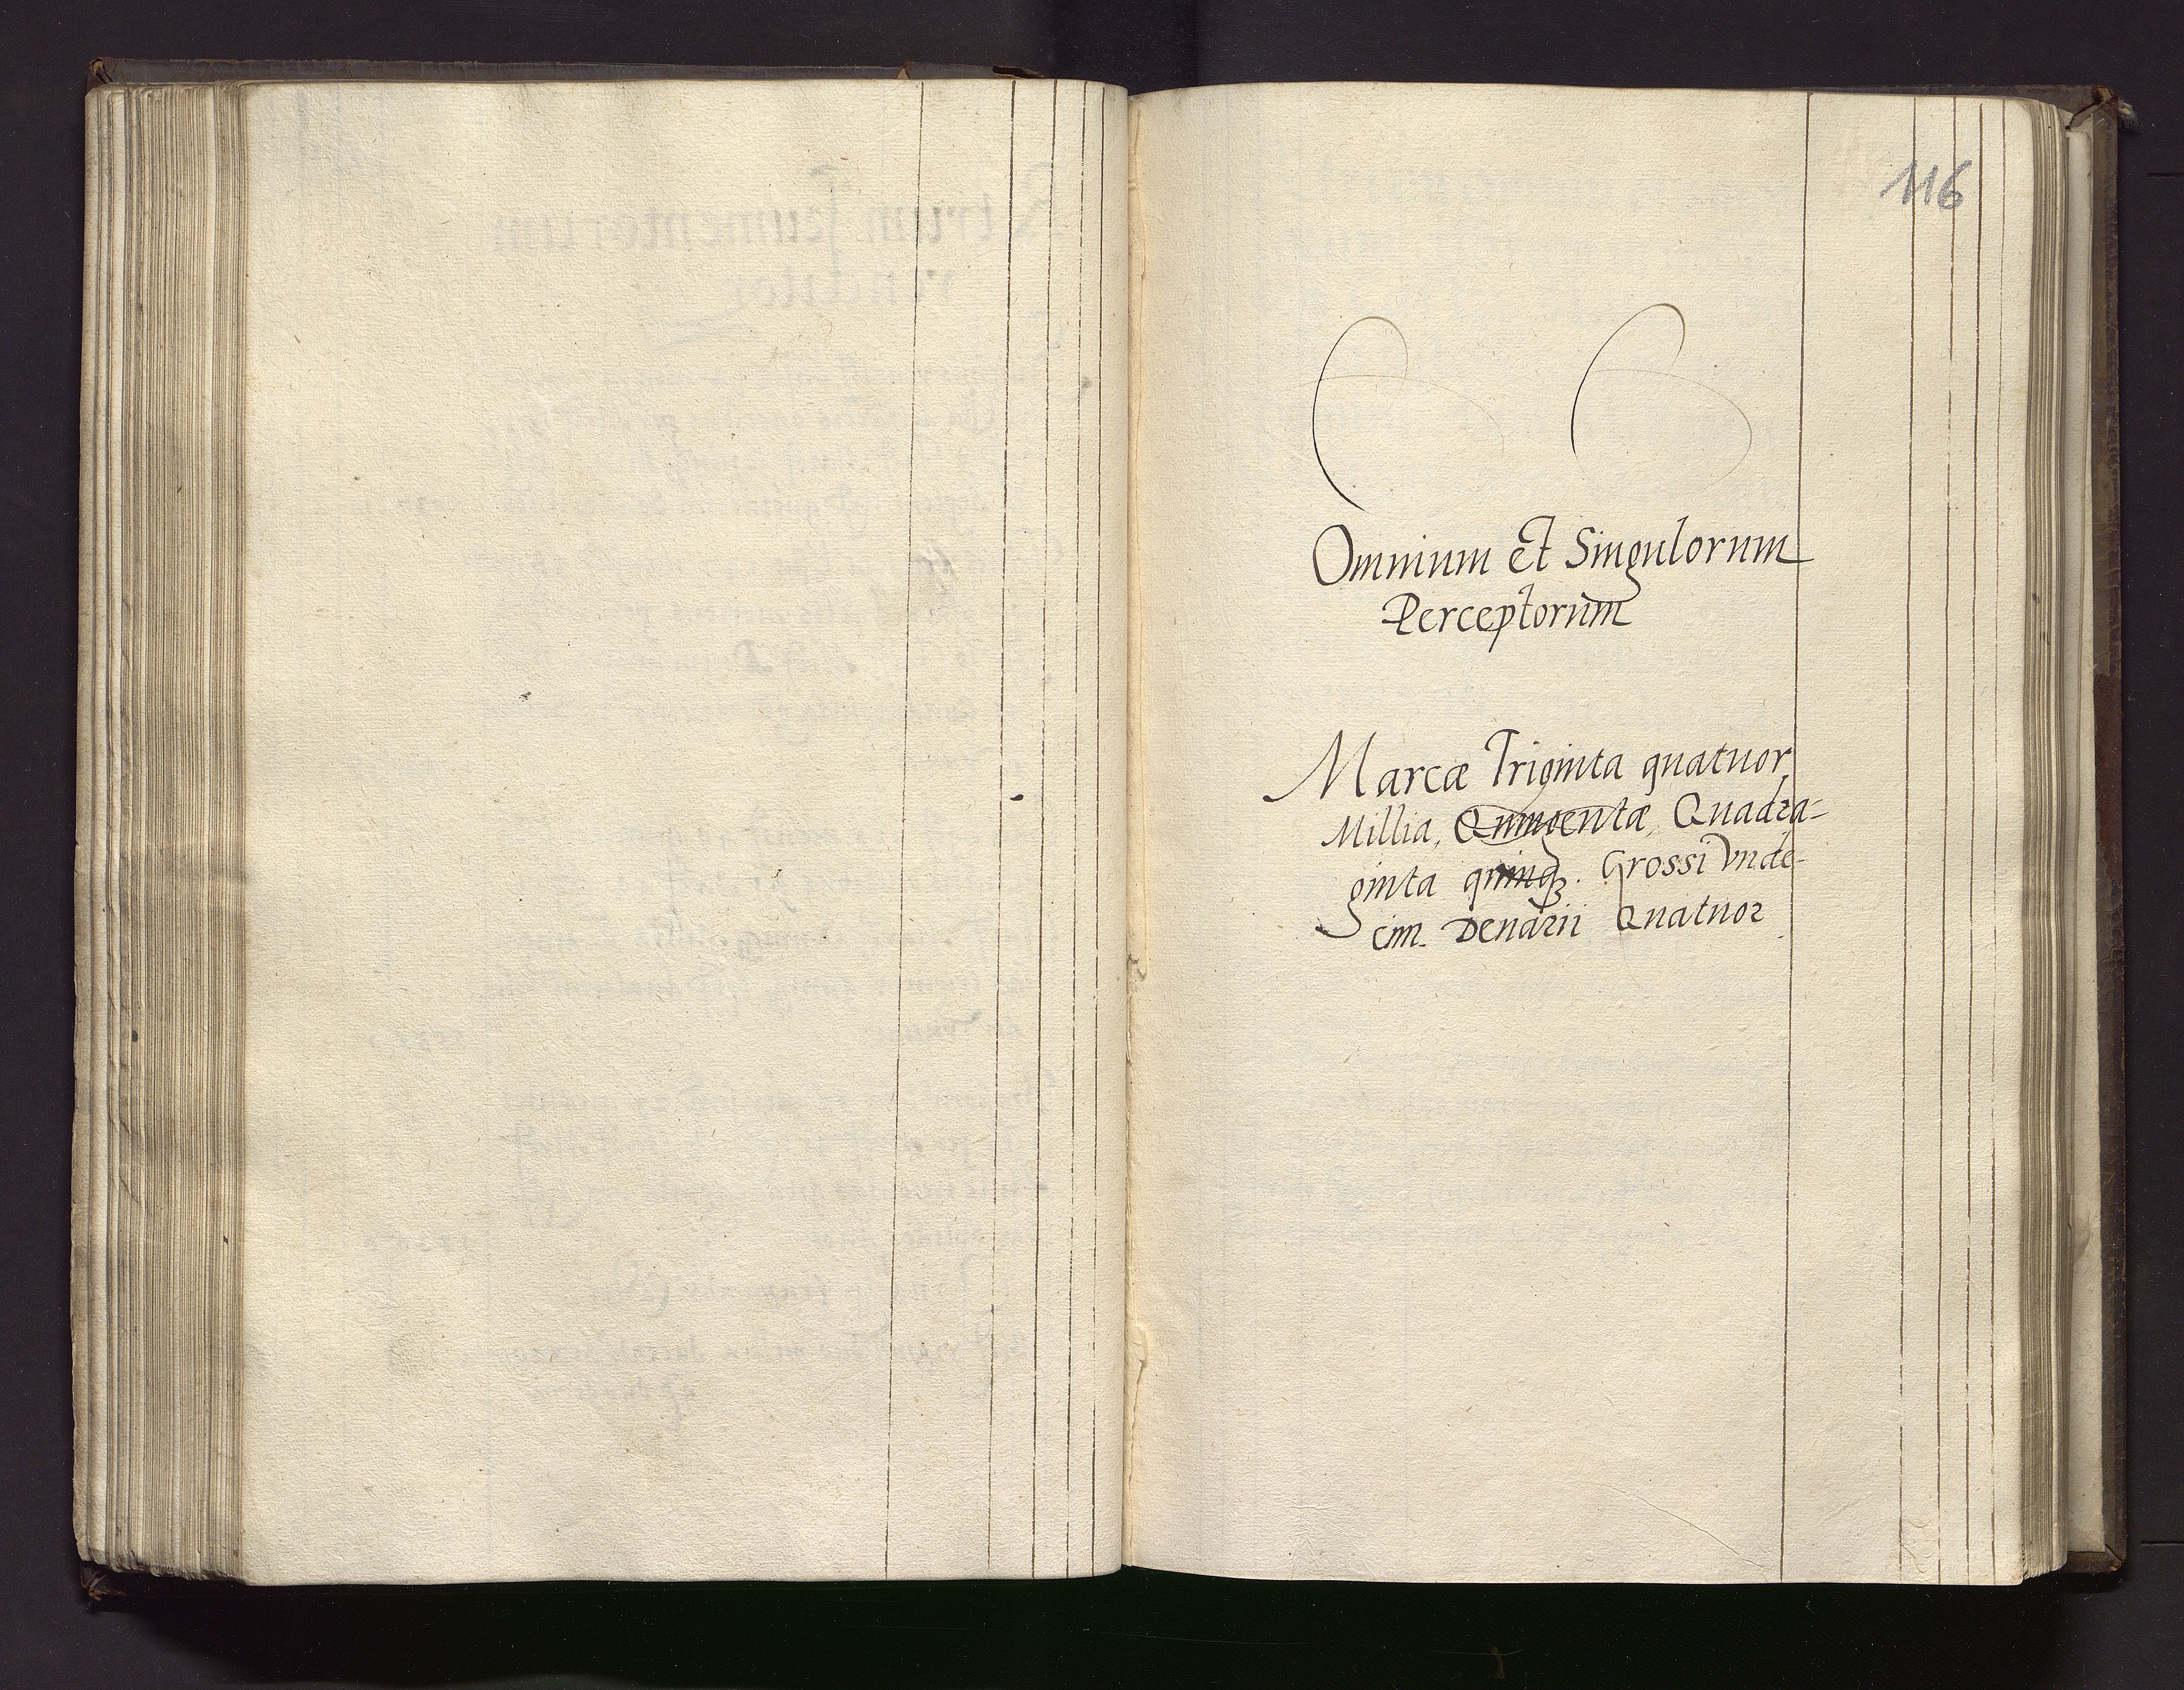 116
Omnium Et Singulorum
Perceptorum
Marcæ Triginta quatuor
Millia, Quingentæ, Quadra=
ginta quinqꝫ. Grossi Vnde-
cim. Denarii Quatuor